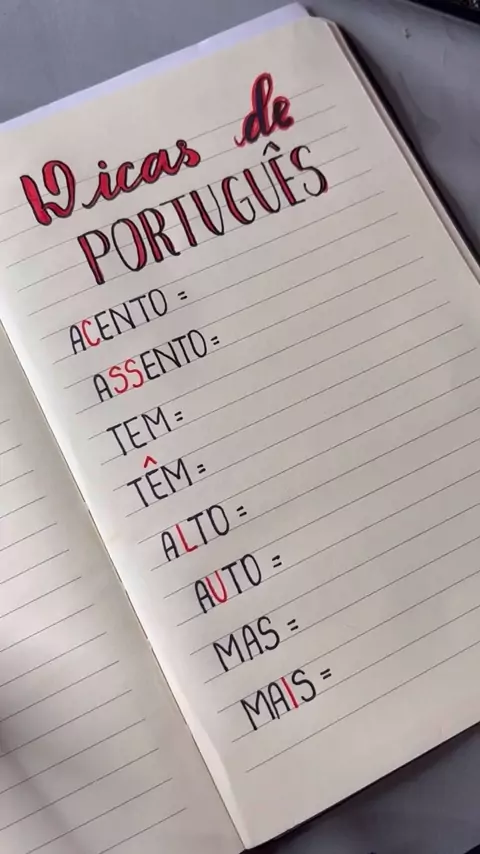 Dicas de
PORTUGUÊS
ACENTO =
ASSENTO=
TEM=
TÊM=
ALTO =
AUTO =
MAS =
MAIS=